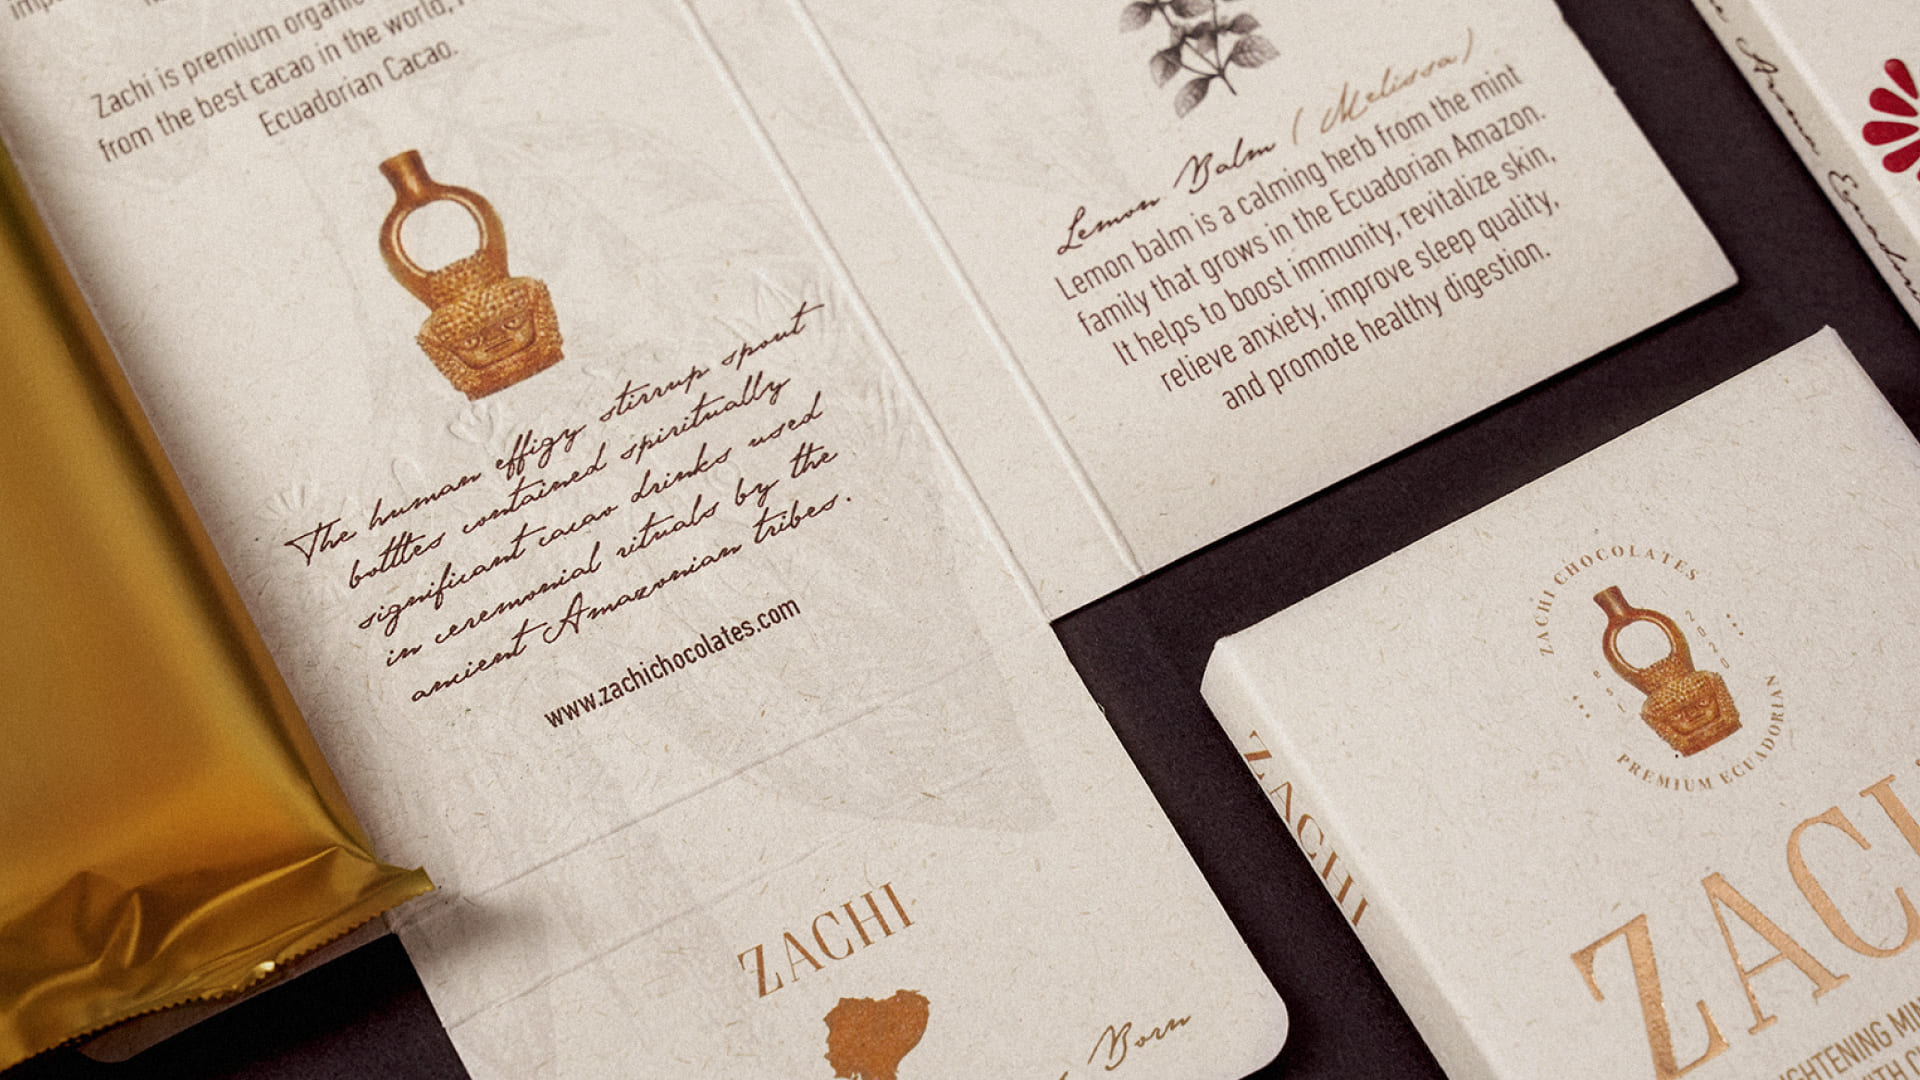 Zachi is premium organic
from the best cacao in the world,
Ecuadorian Cacao.
The human effigy stirrup spout
bottles contained spiritually
significant cacao drinks used
in ceremonial rituals by the
ancient Amazonian tribes.
www.zachichocolates.com
ZACHI
Born
Lemon Balm (Melissa)
Lemon balm is a calming herb from the mint
family that grows in the Ecuadorian Amazon.
It helps to boost immunity, revitalize skin,
relieve anxiety, improve sleep quality,
and promote healthy digestion.
Arma
ZACHI
ZACHI CHOCOLATES
est 2020
PREMIUM ECUADORIAN
ZAC
WITH